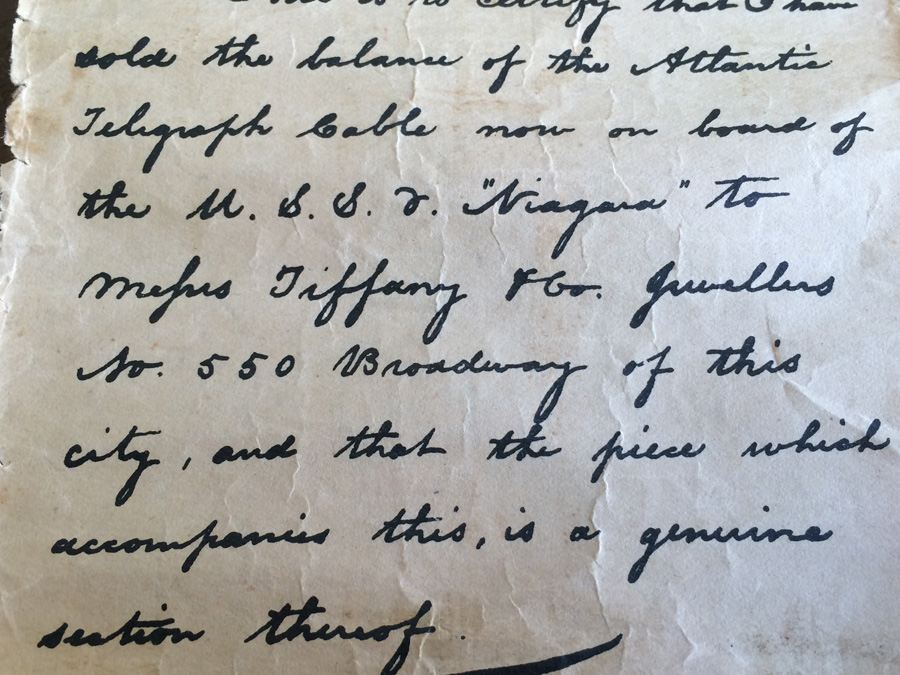 This is to certify that I have
sold the balance of the Atlantic
Telegraph Cable now on board of
the U. S. S. F. "Niagara" to
Messrs Tiffany & Co. Jewellers
No. 550 Broadway of this
city, and that the piece which
accompanies this, is a genuine
section thereof.